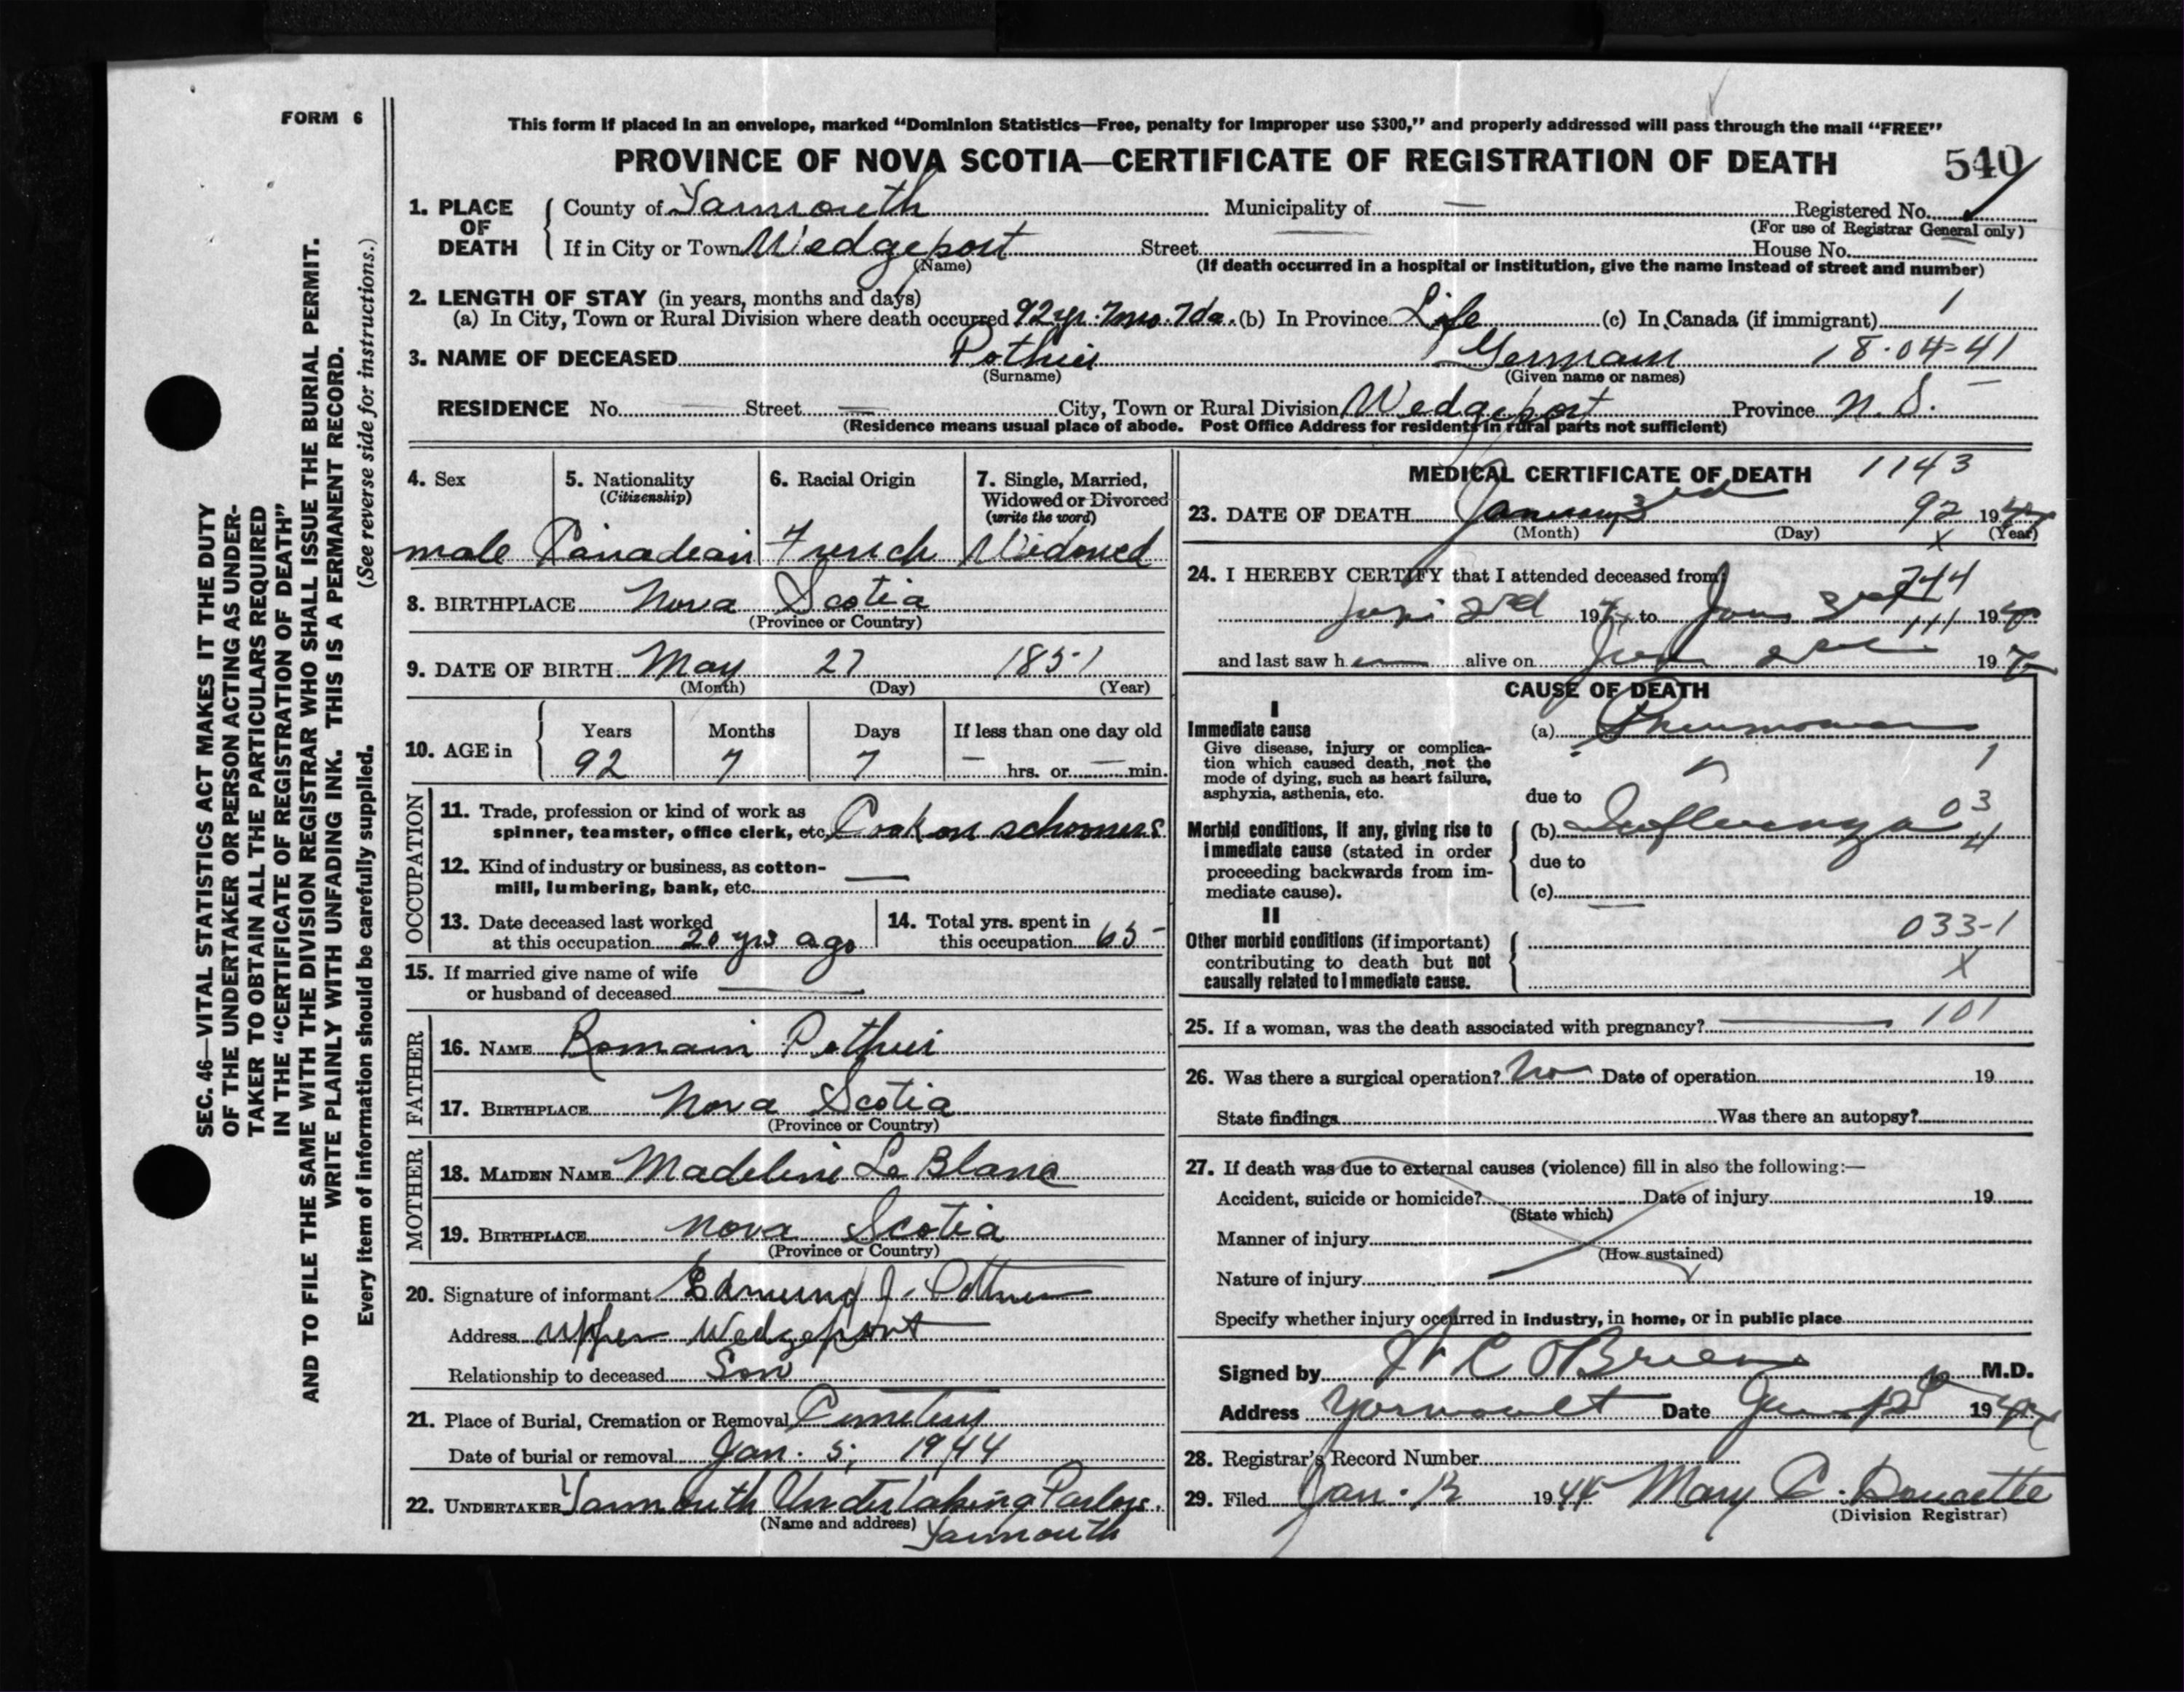 FORM 6
This form if placed in an envelope, marked "Dominion Statistics—Free, penalty for improper use $300," and properly addressed will pass through the mail "FREE"
PROVINCE OF NOVA SCOTIA—CERTIFICATE OF REGISTRATION OF DEATH 540
1. PLACE OF DEATH County of Yarmouth Municipality of — Registered No.
(For use of Registrar General only)
If in City or Town Wedgeport Street House No.
(Name) (If death occurred in a hospital or institution, give the name instead of street and number)
2. LENGTH OF STAY (in years, months and days)
(a) In City, Town or Rural Division where death occurred 92 yr. 7 mo. 7 da. (b) In Province Life (c) In Canada (if immigrant)
3. NAME OF DECEASED Pothier Germain 18-04-41
(Surname) (Given name or names)
RESIDENCE No. — Street — City, Town or Rural Division Wedgeport Province N.S.
(Residence means usual place of abode. Post Office Address for residents in rural parts not sufficient)
4. Sex
male
5. Nationality
(Citizenship)
Canadian
6. Racial Origin
French
7. Single, Married,
Widowed or Divorced
(write the word)
Widowed
8. BIRTHPLACE Nova Scotia
(Province or Country)
9. DATE OF BIRTH May 27 1851
(Month) (Day) (Year)
10. AGE in Years Months Days If less than one day old
92 7 7 — hrs. or — min.
OCCUPATION
11. Trade, profession or kind of work as
spinner, teamster, office clerk, etc. Cook on schooners
12. Kind of industry or business, as cotton-
mill, lumbering, bank, etc. —
13. Date deceased last worked
at this occupation 20 yrs ago
14. Total yrs. spent in
this occupation 65
15. If married give name of wife
or husband of deceased —
FATHER
16. NAME Romain Pothier
17. BIRTHPLACE Nova Scotia
(Province or Country)
MOTHER
18. MAIDEN NAME Madeline Le Blanc
19. BIRTHPLACE Nova Scotia
(Province or Country)
20. Signature of informant Edmund J. Pothier
Address Upper Wedgeport
Relationship to deceased Son
21. Place of Burial, Cremation or Removal Cemetery
Date of burial or removal Jan. 5, 1944
22. UNDERTAKER Yarmouth Undertaking Parlors.
(Name and address) Yarmouth
MEDICAL CERTIFICATE OF DEATH 1143
23. DATE OF DEATH January 3rd 92 1944
(Month) (Day) (Year)
24. I HEREBY CERTIFY that I attended deceased from 744
2nd 19 to Jan 19
and last saw h alive on 19
CAUSE OF DEATH
I
Immediate cause
Give disease, injury or complica-
tion which caused death, not the
mode of dying, such as heart failure,
asphyxia, asthenia, etc.
(a) Pneumonia
due to
Morbid conditions, if any, giving rise to
immediate cause (stated in order
proceeding backwards from im-
mediate cause).
(b) Influenza
due to
(c)
II
Other morbid conditions (if important)
contributing to death but not
causally related to immediate cause.
033-1
X
25. If a woman, was the death associated with pregnancy? — 101
26. Was there a surgical operation? No Date of operation 19
State findings Was there an autopsy?
27. If death was due to external causes (violence) fill in also the following:—
Accident, suicide or homicide? Date of injury 19
(State which)
Manner of injury
(How sustained)
Nature of injury
Specify whether injury occurred in industry, in home, or in public place
Signed by C O'Brien M.D.
Address Yarmouth Date Jan 12 1944
28. Registrar's Record Number
29. Filed Jan. 12 1944 Mary C. Doucette
(Division Registrar)
SEC. 46—VITAL STATISTICS ACT MAKES IT THE DUTY
OF THE UNDERTAKER OR PERSON ACTING AS UNDER-
TAKER TO OBTAIN ALL THE PARTICULARS REQUIRED
IN THE "CERTIFICATE OF REGISTRATION OF DEATH"
AND TO FILE THE SAME WITH THE DIVISION REGISTRAR WHO SHALL ISSUE THE BURIAL PERMIT.
WRITE PLAINLY WITH UNFADING INK. THIS IS A PERMANENT RECORD.
Every item of information should be carefully supplied. (See reverse side for instructions.)